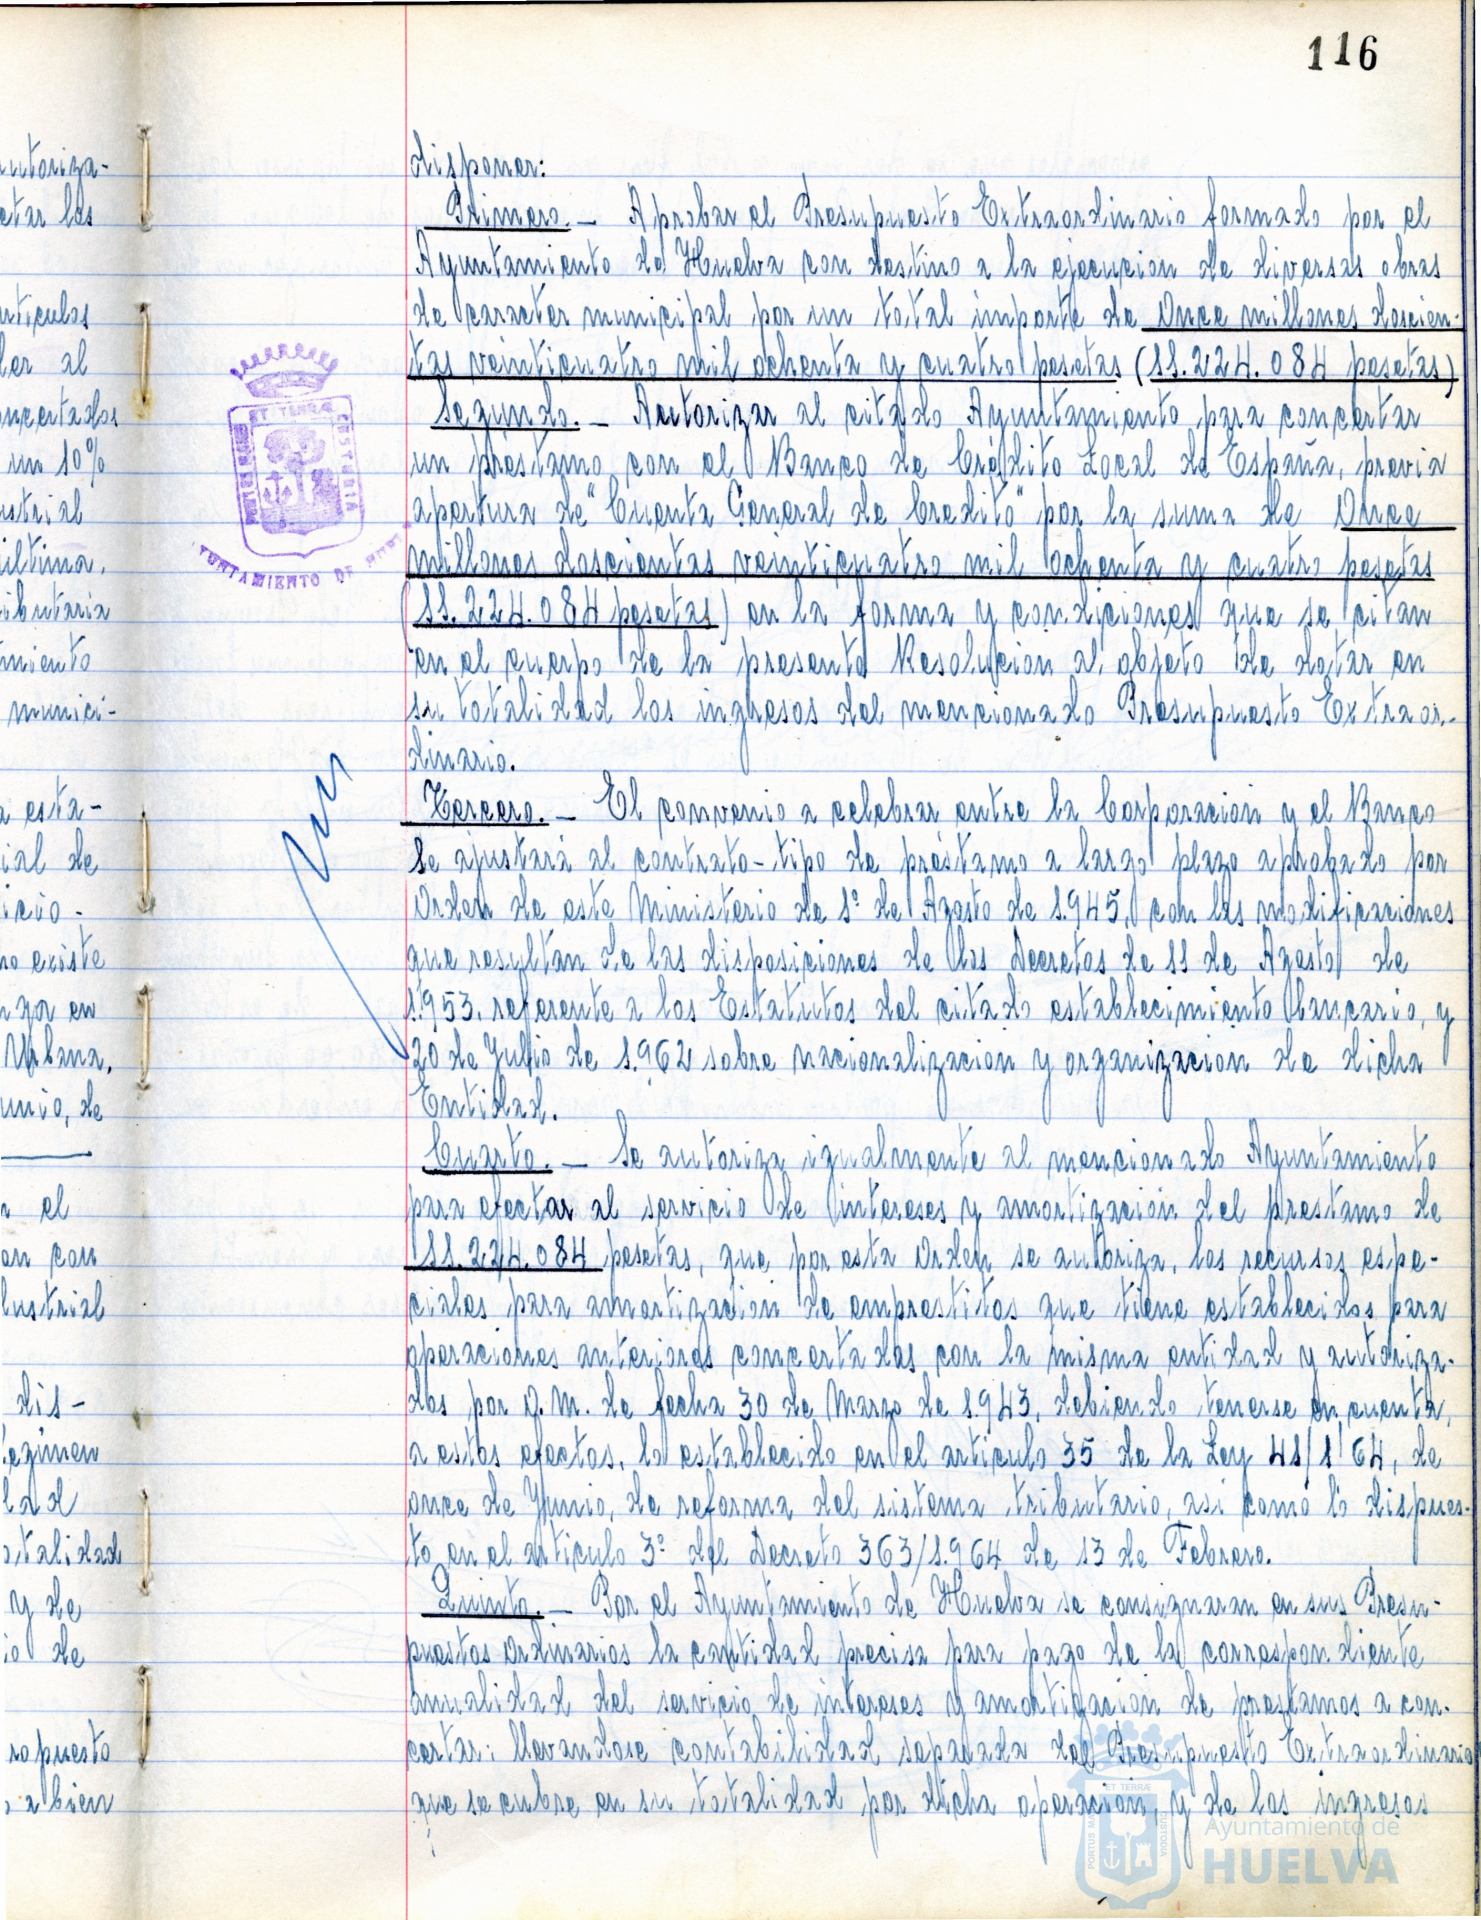 116
autoriza-
ctar los
artículos
der al
oncertados
un 10%
ustrial
última,
ibutaria
miento
munici-
a esta-
ial de
icio.
no existe
nzar en
Urbana,
unio, de
a el
on con
dustrial
dis-
Regimen
dad
otalidad
y de
io de
ropuesto
a bien
disponer:
Primero.- Aprobar el Presupuesto Extraordinario formado por el
Ayuntamiento de Huelva con destino a la ejecucion de diversas obras
de caracter municipal por un total importe de Once millones doscien-
tas veinticuatro mil ochenta y cuatro pesetas (11.224.084 pesetas)
Segundo.- Autorizar al citado Ayuntamiento para concertar
un préstamo con el Banco de Crédito Local de España, previa
apertura de "Cuenta General de Credito" por la suma de Once
millones doscientas veinticuatro mil ochenta y cuatro pesetas
(11.224.084 pesetas) en la forma y condiciones que se citan
en el cuerpo de la presente Resolución al objeto de dotar en
su totalidad los ingresos del mencionado Presupuesto Extraor-
dinario.
Tercero.- El convenio a celebrar entre la Corporación y el Banco
se ajustará al contrato-tipo de préstamo a largo plazo aprobado por
Orden de este Ministerio de 1º de Agosto de 1.945, con las modificaciones
que resultan de las disposiciones de los Decretos de 11 de Agosto de
1.953, referente a los Estatutos del citado establecimiento bancario, y
20 de Julio de 1.962 sobre nacionalización y organización de dicha
Entidad.
Cuarto.- Se autoriza igualmente al mencionado Ayuntamiento
para efectar al servicio de intereses y amortización del prestamo de
11.224.084 pesetas, que por esta Orden se autoriza, los recursos espe-
ciales para amortización de emprestitos que tiene establecidos para
operaciones anteriores concertadas con la misma entidad y autoriza-
dos por O.M. de fecha 30 de Marzo de 1.943, debiendo tenerse en cuenta,
a estos efectos, lo establecido en el artículo 35 de la Ley 41/1964, de
once de Junio, de reforma del sistema tributario, así como lo dispues-
to en el artículo 3º del Decreto 363/1.964 de 13 de Febrero.
Quinto.- Por el Ayuntamiento de Huelva se consignaran en sus Presu-
puestos Ordinarios la cantidad precisa para pago de la correspondiente
anualidad del servicio de intereses y amortización de prestamos a con-
certar; llevandose contabilidad separada del Presupuesto Extraordinario
que se cubre en su totalidad por dicha operación, y de los ingresos
PORTUS MARIS ET TERRÆ CUSTODIA
AYUNTAMIENTO DE HUELVA
PORTUS MARIS ET TERRÆ CUSTODIA
Ayuntamiento de
HUELVA